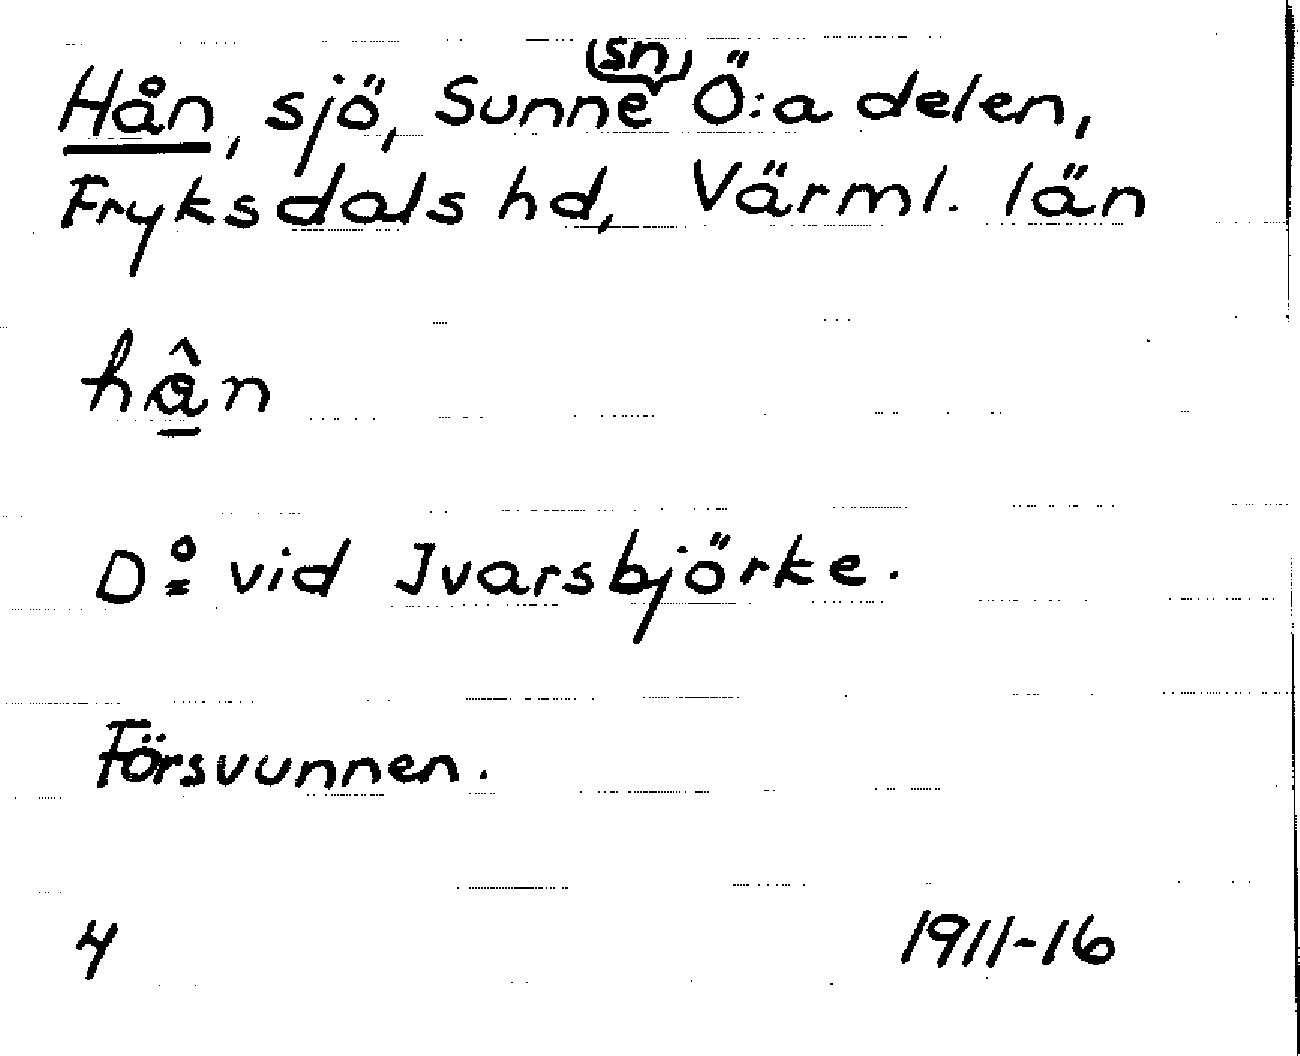 Hån, sjö, Sunne (sn) Ö:a delen,
Fryksdals hd, Värml. län
hân
Do vid Ivarsbjörke.
Försvunnen.
4 1911-16